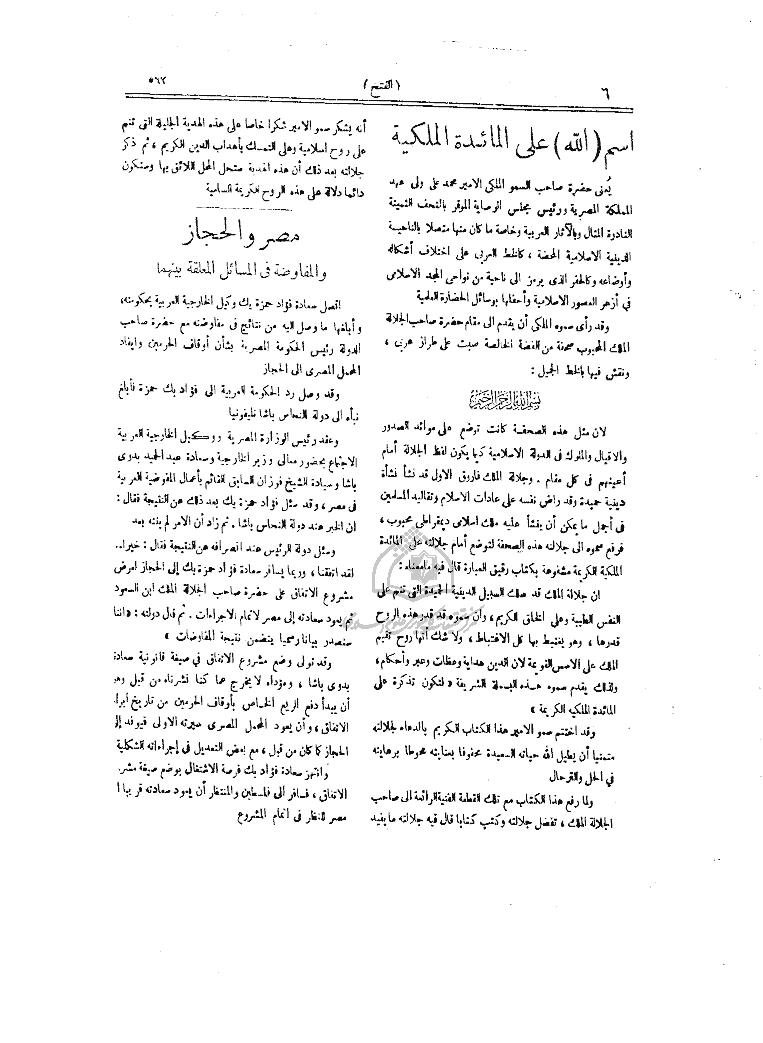 ٦
( الفتح )
٥٦٢
اسم (الله) على المائدة الملكية
يُعنى حضرة صاحب السمو الملكى الامير محمد على ولى عهد
المملكة المصرية ورئيس مجلس الوصاية الموقر بالتحف الثمينة
النادرة المثال وبالآثار العربية وخاصة ما كان منها متصلا بالناحية
الدينية الاسلامية المحضة ، كالخط العربى على اختلاف أشكاله
وأوضاعه وكالحفر الذى يرمز الى ناحية من نواحى المجد الاسلامى
فى أزهر العصور الاسلامية وأحفلها بوسائل الحضارة العلمية
وقد رأى سموه الملكى أن يقدم الى مقام حضرة صاحب الجلالة
الملك المحبوب صحفة من الفضة الخالصة صبت على طراز عربى ،
ونقش فيها بالخط الجميل :
بسم الله الرحمن الرحيم
لان مثل هذه الصحفة كانت توضع على موائد الصدور
والاقيال والملوك فى الدولة الاسلامية كيما يكون لفظ الجلالة أمام
أعينهم فى كل مقام . وجلالة الملك فاروق الاول قد نشأ نشأة
دينية حميدة وقد راض نفسه على عادات الاسلام وتقاليد المسلمين
فى أجمل ما يمكن أن ينشأ عليه ملك اسلامى ديمقراطى محبوب ،
فرفع سموه الى جلالته هذه الصحفة لتوضع أمام جلالته على المائدة
الملكية الكريمة مشفوعة بكتاب رقيق العبارة قال فيه مامعناه :
ان جلالة الملك قد سلك السبيل الدينية الحميدة التى تنم على
النفس الطيبة وعلى الخلق الكريم ، وأن سموه قد قدر هذه الروح
قدرها ، وهو يغتبط بها كل الاغتباط ، ولا شك أنها روح تقيم
الملك على الاسس القويمة لان الدين هداية وعظات وعبر وأحكام،
ولذلك يقدم سموه هذه البسملة الشريفة « لتكون تذكرة على
المائدة الملكيه الكريمة »
وقد اختتم سمو الامير هذا الكتاب الكريم بالدعاء لجلالته
متمنيا أن يطيل الله حياته السعيدة محفوفا بعنايته محوطا برعايته
فى الحل والترحال
ولما رفع هذا الكتاب مع تلك القطعة الفنية الرائعة الى صاحب
الجلالة الملك ، تفضل جلالته وكتب كتابا قال فيه جلالته ما يفيد
أنه يشكر سمو الامير شكرا خاصا على هذه الهدية الجليلة التى تنم
على روح اسلامية وعلى التمسك بأهداب الدين الكريم ، ثم ذكر
جلالته بعد ذلك أن هذه الهدية ستحل المحل اللائق بها وستكون
دائما دلالة على هذه الروح الكريمة السامية
مصر والحجاز
والمفاوضة فى المسائل المعلقة بينهما
اتصل سعادة فؤاد حمزة بك وكيل الخارجية العربية بحكومته،
وأبلغها ما وصل اليه من نتائج فى مفاوضته مع حضرة صاحب
الدولة رئيس الحكومة المصرية بشأن أوقاف الحرمين وإيفاد
المحمل المصرى الى الحجاز
وقد وصل رد الحكومة العربية الى فؤاد بك حمزة فأبلغ
نبأه الى دولة النحاس باشا تليفونيا
وعقد رئيس الوزارة المصرية ووكيل الخارجية العربية
الاجتماع بحضور معالى وزير الخارجية وسعادة عبد الحميد بدوى
باشا وسيادة الشيخ فوزان السابق القائم بأعمال المفوضية العربية
فى مصر ، وقد سئل فؤاد حمزة بك بعد ذلك عن النتيجة فقال :
ان الخبر عند دولة النحاس باشا . ثم زاد أن الامر لم ينته بعد
وسئل دولة الرئيس عند انصرافه عن النتيجة فقال : خيرا..
لقد اتفقنا ، وربما يسافر سعادة فؤاد حمزة بك إلى الحجاز لعرض
مشروع الاتفاق على حضرة صاحب الجلالة الملك ابن السعود
ثم يعود سعادته إلى مصر لاتمام الاجراءات . ثم قال دولته : « اننا
سنصدر بيانا رسميا يتضمن نتيجة المفاوضات »
وقد تولى وضع مشروع الاتفاق فى صيغة قانونية سعادة
بدوى باشا ، ومؤداه لا يخرج عما كنا نشرناه من قبل وهو
أن يبدأ دفع الريع الخاص بأوقاف الحرمين من تاريخ ابرام
الاتفاق ، وأن يعود المحمل المصرى سيرته الاولى فيوفد إلى
الحجاز كما كان من قبل ، مع بعض التعديل فى إجراءاته الشكلية
وانتهز سعادة فؤاد بك فرصة الاشتغال بوضع صيغة مشر.
الاتفاق ، فسافر الى فلسطين والمنتظر أن يعود سعادته قريبا ا
مصر للنظر فى اتمام المشروع